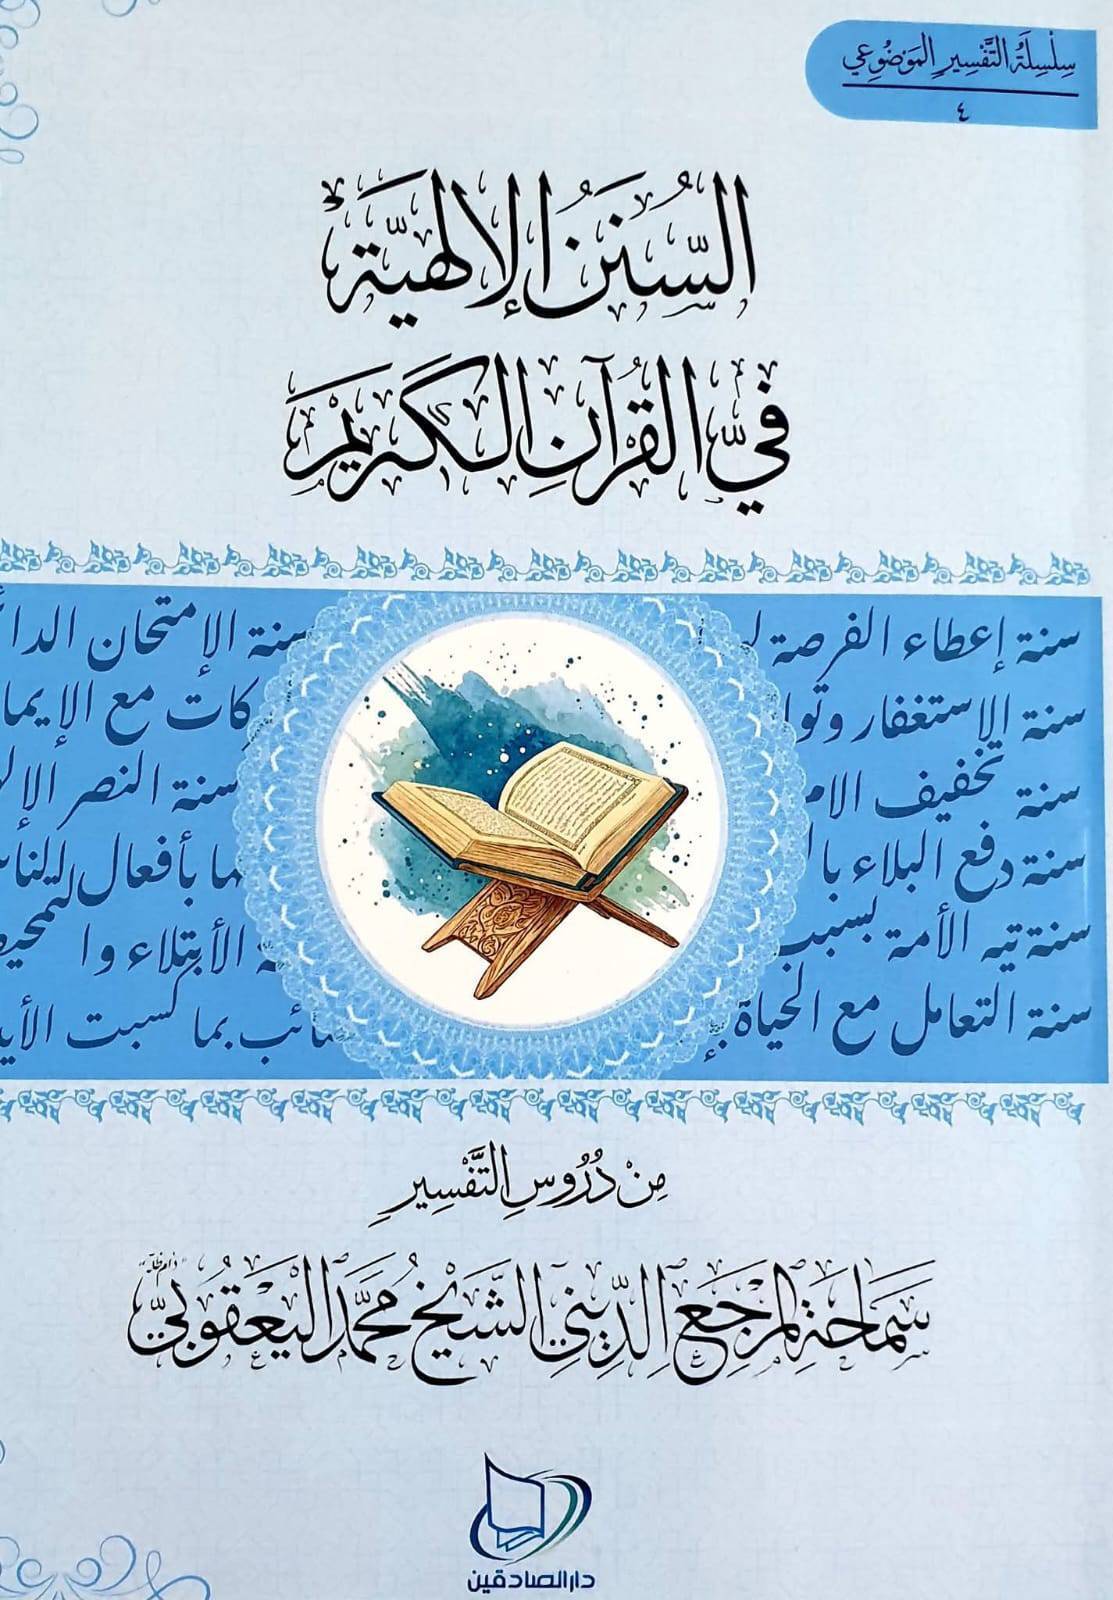 سِلْسِلَةُ التَّفْسِيرِ المَوْضُوعِي
٤
السُّنَنُ الإلهيَّة
فِي القُرآنِ الكَرِيم
سنة إعطاء الفرصة
سنة الإمتحان الدا
سنة الاستغفار وتوا
كات مع الإيما
سنة تخفيف الام
سنة النصر الإل
سنة دفع البلاء با
ها بأفعال الناس
سنة تيه الأمة بسبب
الأبتلاء وا
سنة التعامل مع الحياة
ائب بما كسبت الأي
مِنْ دُرُوسِ التَّفْسِيرِ
سَمَاحَةِ المَرْجِعِ الدِّينِيِّ الشَّيْخِ مُحَمَّد اليَعْقُوبِيّ "دَامَ ظِلُّهُ"
دار الصادقين